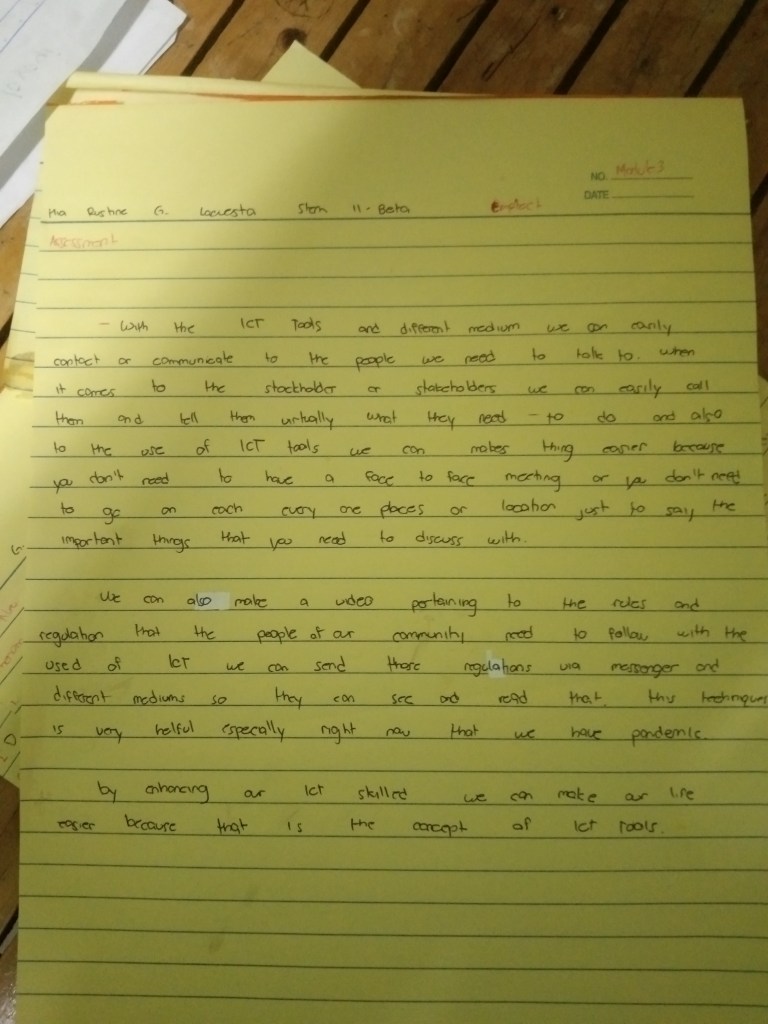 NO. Module 3
DATE
G. Lacuesta Stem 11 - Beta
Assessment
- With the ICT Tools and different medium we can easily
contact or communicate to the people we need to talk to. when
it comes to the stockholder or stakeholders we can easily call
them and tell them virtually what they need - to do and also
to the use of ICT tools we can makes thing easier because
you don't need to have a face to face meeting or you don't need
to go on each every one places or location just to say the
important things that you need to discuss with.
We can also make a video pertaining to the rules and
regulation that the people of our community need to follow with the
used of ICT we can send those regulations via messenger and
different mediums so they can see and read that. this techniques
is very helful especally right now that we have pandemic.
by enhancing our Ict skilled we can make our life
easier because that is the concept of Ict Tools.